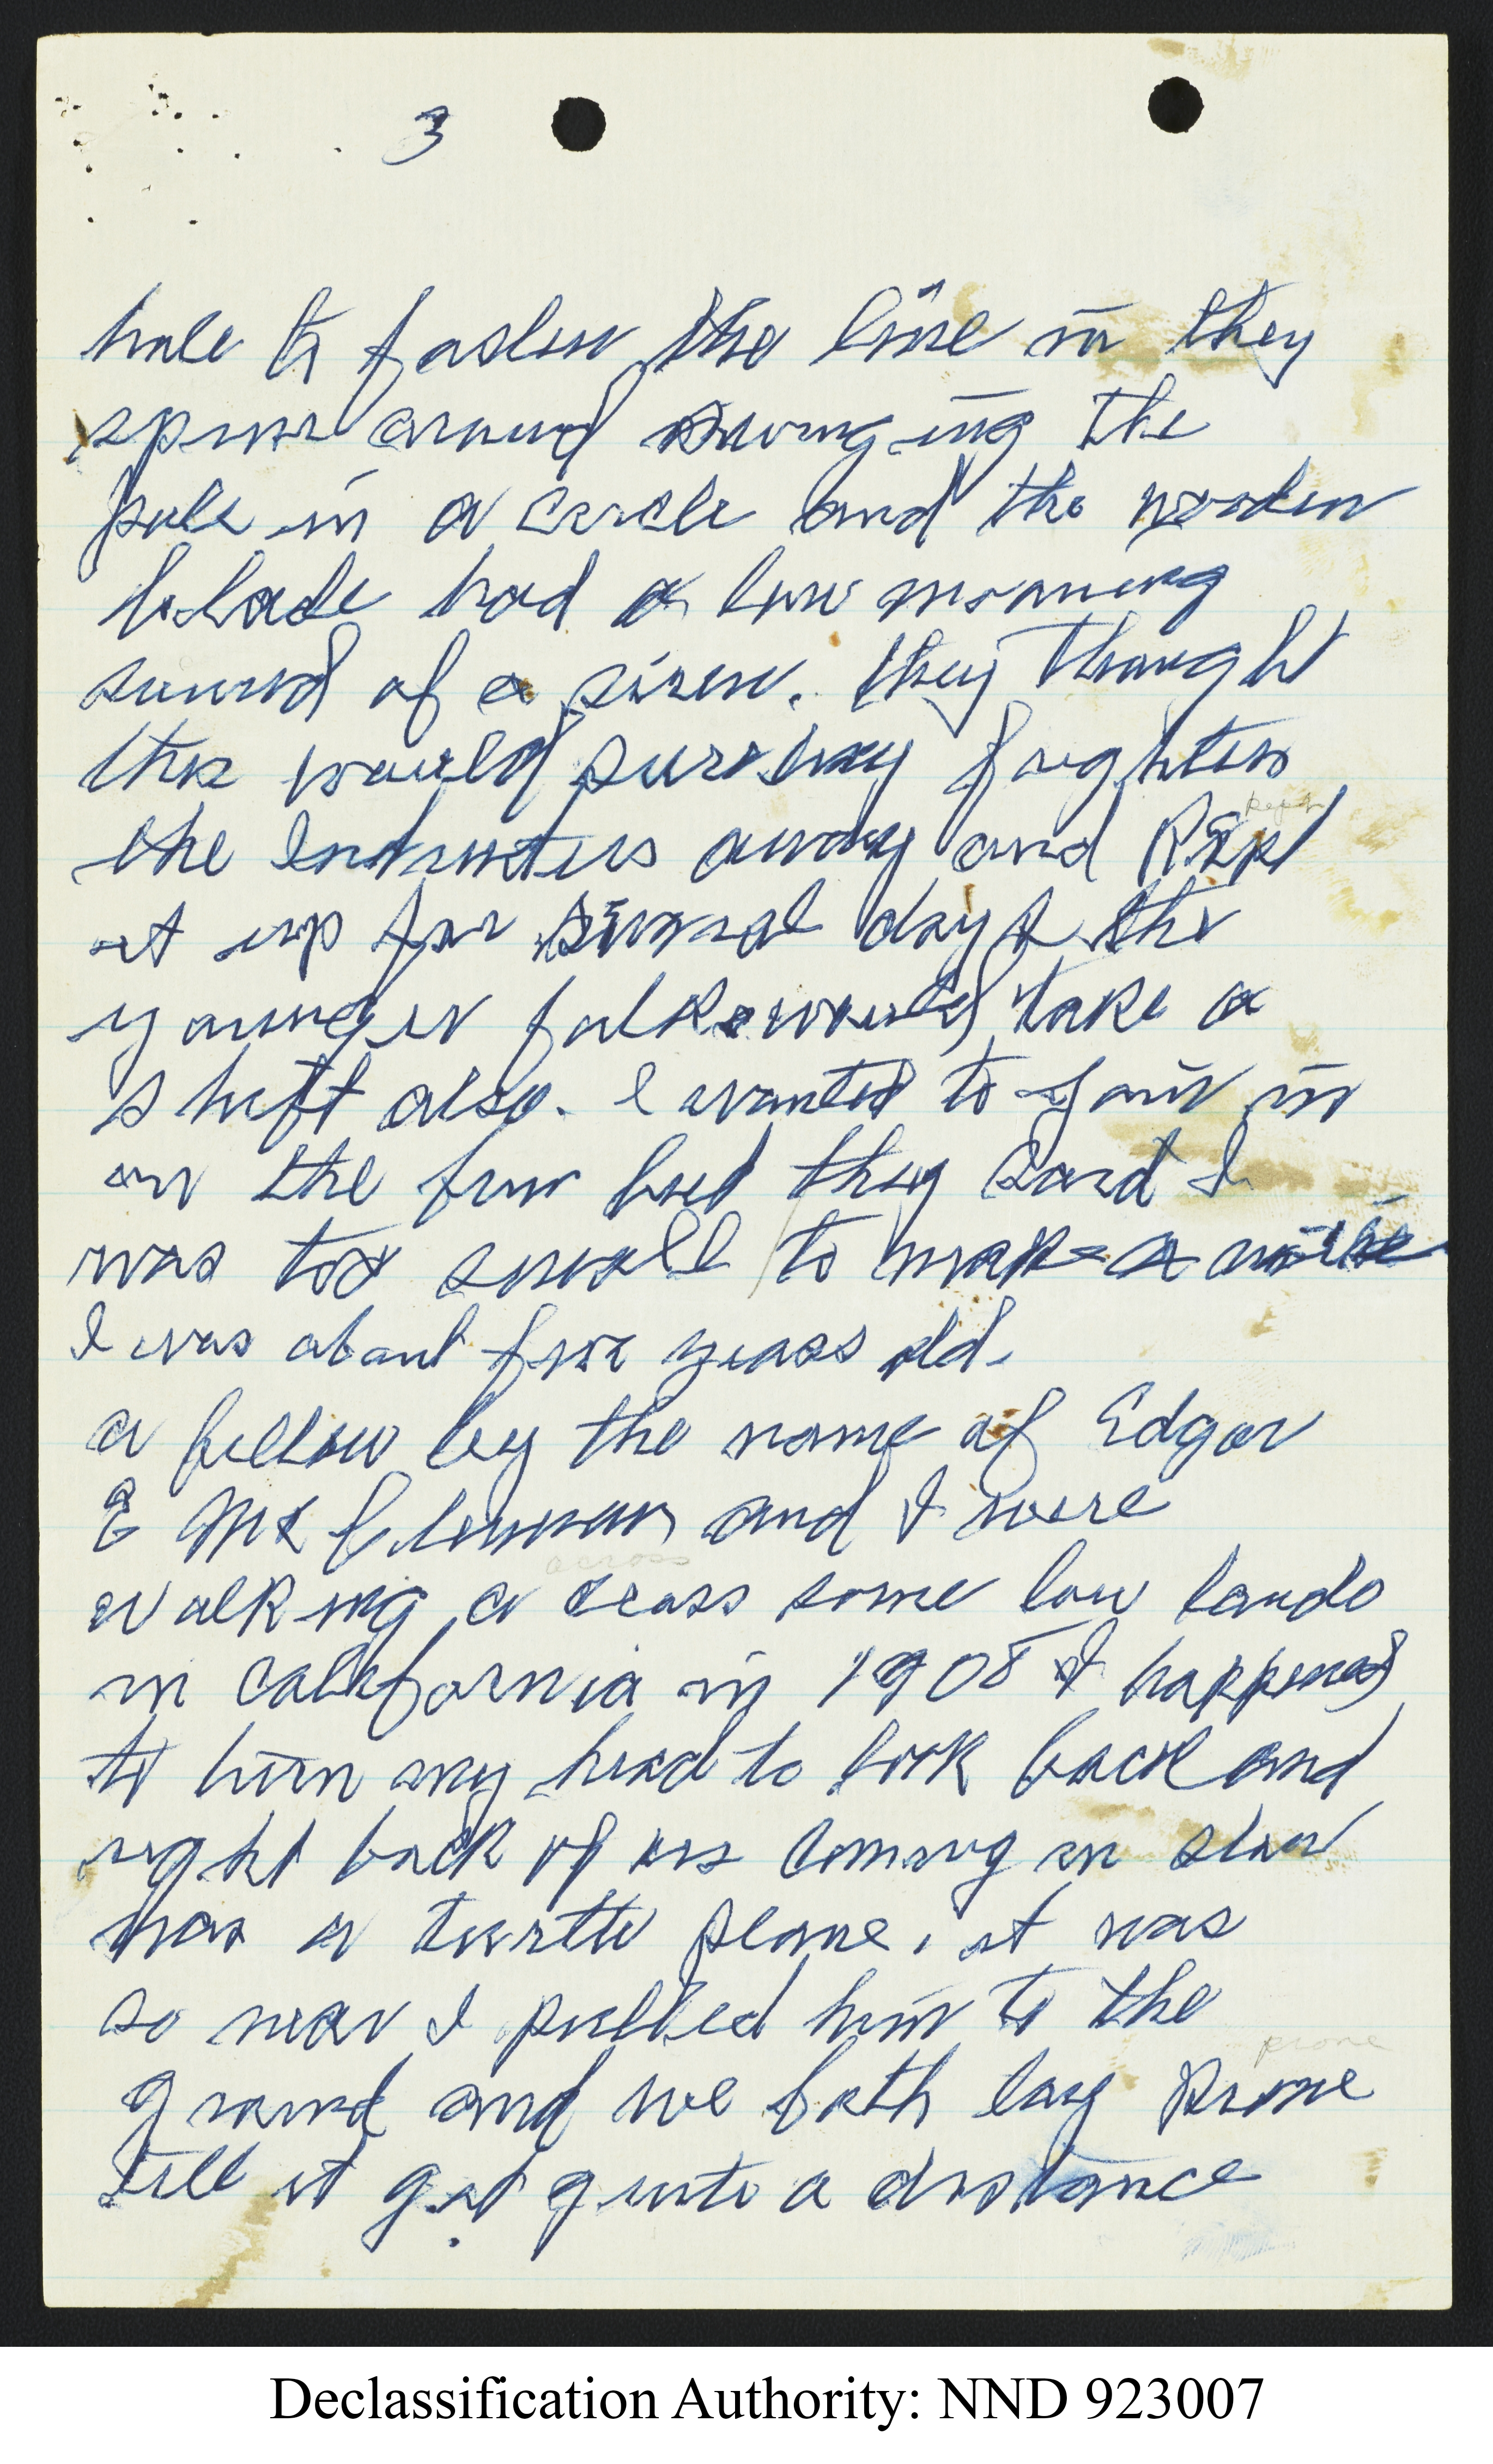 3
hole to fasten the line in they
spun around swinging the
pole in a circle and the wooden
blade had a low moaning
sound of a siren. they thought
this would surely frighten
kept
the Intruters away and Kept
it up for several days the
younger folks would take a
shift also. I wanted to join in
on the fun but they said I
was too small to make a noise
I was about five years old.
a fellow by the name of Edgar
E Mc and I were
across
walking a cross some low lands
in California in 1908 I happened
to turn my head to look back and
right back of us coming in slow
was a turtle plane, it was
so near I pulled him to the
prone
ground and we both lay Prone
till it got quite a distance
Declassification Authority: NND 923007